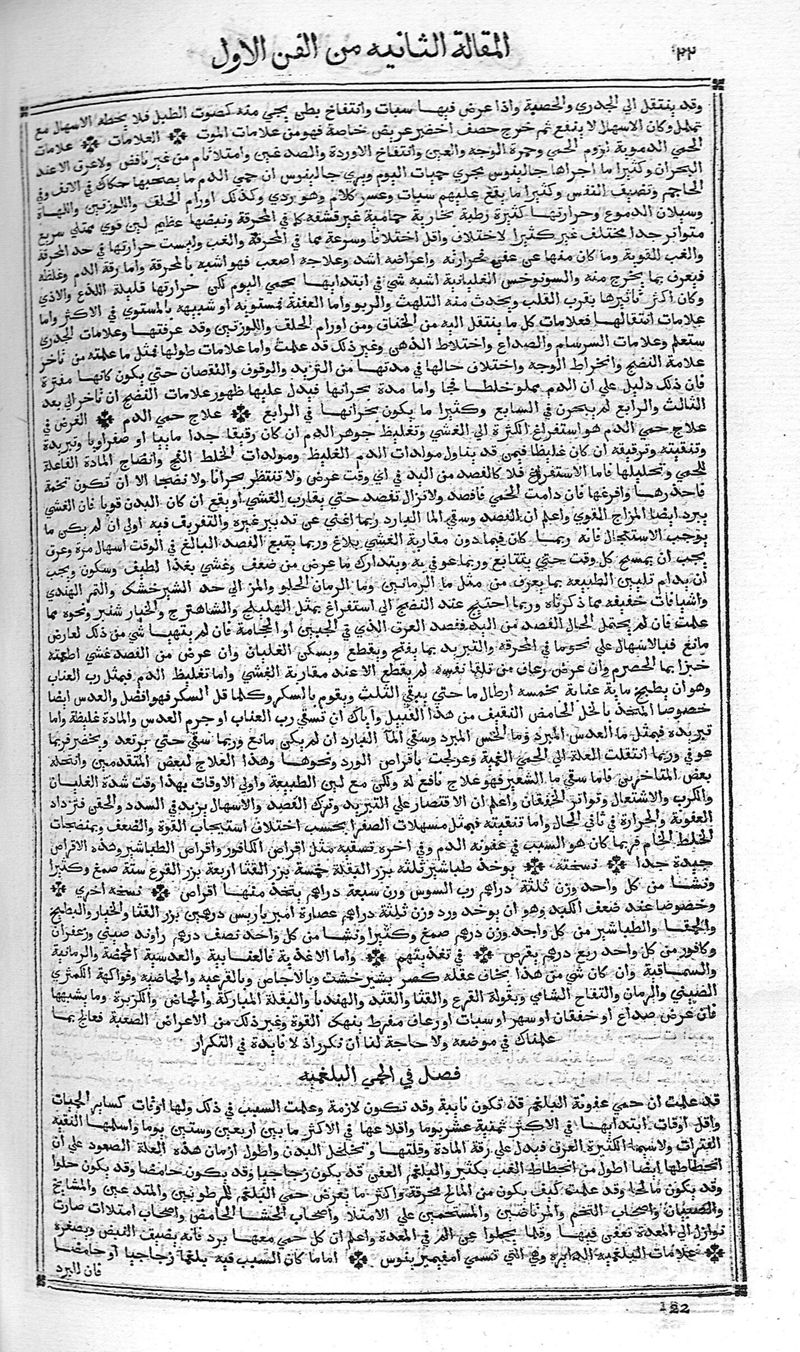 ٢٢
المقالة الثانيه من الفن الاول
وقد ينتقل الي الجدري والحصبة واذا عرض فيها سبات وانتفاخ بطن يجي منه كصوت الطبل فلا يحطه الاسهال مع
تململ وكان الاسهال لا ينفع ثم خرج حصف اخضر عريض خاصة فهو من علامات الموت ۞ العلامات ۞ علامات
الحمي الدموية لزوم الحمي وحمرة الوجه والعين وانتفاخ الاوردة والصدغين وامتلا تام من غير نافض ولا عرق الا عند
البحران وكثيرا ما اجراها جالينوس مجري حميات اليوم ويري جالينوس ان حمي الدم ما يصحبها حكاك في الانف وفي
المحاجر وتضيف النفس وكثيرا ما يقع عليهم سبات وعسر كلام وهو ردي وكذلك اورام الحلق واللوزتين واللهاة
وسيلان الدموع وحرارتها كثيرة رطبة بخارية حمامية غير قشفه كما في المحرقة ونبضها عظيم لين قوي ممتلي سريع
متواتر جدا مختلف غير كثير الاختلاف واقل اختلافا وسرعة مما في المحرقة والغب وليست حرارتها في حد المحرقة
والغب القوية وما كان منها عن عفن فحرارته واعراضه اشد وعلاجه اصعب فهو اشبه بالمحرقة واما رقة الدم وغلظه
فيعرف بما يخرج منه والسونوخس الغليانية اشبه شي في ابتدابها بحمي اليوم لكن حرارتها قليلة اللذع والاذي
وكان اكثر تاثيرها بقرب القلب ويحدث منه التلهث والربو واما العفنة فمستوية او شبيهه بالمستوي في الاكثر واما
علامات انتقالها فعلامات كل ما ينتقل اليه من الخناق ومن اورام الحلق واللوزتين وقد عرفتها وعلامات الجدري
ستعلم وعلامات السرسام والصداع واختلاط الذهن وغير ذلك قد علمت واما علامات طولها فمثل ما علمته من تاخر
علامة النضج وانخراط الوجه واختلاف حالها في مدتها من التزيد والوقوف والنقصان حتي يكون كانها مفترة
فان ذلك دليل علي ان الدم مملو خلطا فجا واما مدة بحرانها فيدل عليها ظهور علامات النضج ان تاخر الي بعد
الثالث والرابع لم يبحرن في السابع وكثيرا ما يكون بحرانها في الرابع ۞ علاج حمي الدم ۞ الغرض في
علاج حمي الدم هو استفراغ الكثرة الي الغشي وتغليظ جوهر الدم ان كان رقيقا جدا ماييا او صفراويا وتبريده
وتنقيته وترقيقه ان كان غليظا فيمن قد يناول مولدات الدم الغليظ ومولدات الخلط الفج وانضاج المادة الفاعلة
للحمي وتحليلها فاما الاستفراغ فلا كالفصد من اليد في اي وقت عرض ولا تنتظر بحرانا ولا نضجا الا ان تكون تخمة
فاحدرها وافرغها فان دامت الحمي فافصد ولا تزال تفصد حتي يقارب الغشي او يقع ان كان البدن قويا فان الغشي
يبرد ايضا المزاج القوي واعلم ان الفصد وسقي الما البارد ربما اغني عن تدبير غيره والتفريق فيه اولي ان لم يكن ما
يوجب الاستعجال فانه ربما كان فيما دون مقاربة الغشي بلاغ وربما يتبع الفصد البالغ في الوقت اسهال مرة وعرق
يجب ان يمسح كل وقت حتي يتتابع وربما عوفي به ويتدارك ما عرض من ضعف وغشي بغذا لطيف وسكون ويجب
ان يدام تليين الطبيعة بما يعرف من مثل ما الرمانين وما الرمان الحلو والمز الي حد الشيرخشك والتمر الهندي
واشيافات خفيفه مما ذكرناه وربما احتيج عند النضج الي استفراغ بمثل الهليلج والشاهترج والخيار شنبر ونحوه مما
علمت فان لم يحتمل الحال الفصد من اليد ففصد العرق الذي في الجبين او الحجامة فان لم يتهيا شي من ذلك لعارض
مانع فبالاسهال علي نحو ما في المحرقه والتبريد بما يفتح ويقطع ويسكن الغليان وان عرض من الفصد غشي اطعمته
خبزا بما الحصرم وان عرض رعاف من تلقا نفسه لم يقطع الا عند مقاربة الغشي واما تغليظ الدم فبمثل رب العناب
وهو ان يطبخ ماية عنابة بخمسه ارطال ما حتي يبقي الثلث ويقوم بالسكر وكلما قل السكر فهو افضل والعدس ايضا
خصوصا المتخذ بالخل الحامض الثقيف من هذا القبيل واياك ان تسقي رب العناب او جرم العدس والمادة غليظة واما
تبريده فبمثل ما العدس المبرد وما الخس المبرد وسقي الما البارد ان لم يكن مانع وربما سقي حتي يرتعد ويخضر فربما
عوفي وربما انتقلت العلة الي الحمي البلغمية وعولجت باقراص الورد ونحوها وهذا العلاج لبعض المتقدمين وانتحله
بعض المتاخرين فاما سقي ما الشعير فهو علاج نافع له ولكن مع لين الطبيعة واولي الاوقات بهذا وقت شدة الغليان
والكرب والاشتعال وتواتر الخفقان واعلم ان الاقتصار علي التبريد وترك الفصد والاسهال يزيد في السدد والحقن فتزداد
العفونة والحرارة في ثاني الحال واما تنقيته فبمثل مسهلات الصفرا بحسب اختلاف استيجاب القوة والضعف وبمنضجات
الخلط الخام فربما كان هو السبب في عفونة الدم وفي اخره تسقيه مثل اقراص الكافور واقراص الطباشير وهذه الاقراص
جيدة جدا ۞ نسخته ۞ يوخذ طباشير ثلثه بزر البقلة خمسة بزر القثا اربعة بزر القرع ستة صمغ وكثيرا
ونشا من كل واحد وزن ثلثة دراهم رب السوس وزن سبعة دراهم يتخذ منها اقراص ۞ نسخه اخري ۞
وخصوصا عند ضعف الكبد وهو ان يوخذ ورد وزن ثلثة دراهم عصارة امير باريس درهمين بزر القثا والخيار والبطيخ
والحمقا والطباشير من كل واحد وزن درهم صمغ وكثيرا ونشا من كل واحد نصف درهم راوند صيني وزعفران
وكافور من كل واحد ربع درهم يقرص ۞ في تغذيتهم ۞ واما الاغذية فالعنابية والعدسية المحمضة والرمانية
والسماقية وان كان شي من هذا يخاف عقله كسر بشيرخشت وبالاجاص وبالقرعيه والحماضيه وفواكهة الكمثري
الصيني والرمان والتفاح الشامي وبقولة القرع والقثا والقثد والهندبا والبقلة المباركة والحماض والكزبرة وما يشبهها
فان عرض صداع او خفقان او سهر او سبات او رعاف مفرط ينهك القوة وغير ذلك من الاعراض الصعبة فعالج بما
علمناك في موضعه ولا حاجة لنا ان نكرر اذ لا فايدة في التكرار
فصل في الحمي البلغميه
قد علمت ان حمي عفونة البلغم قد تكون نايبة وقد تكون لازمة وعلمت السبب في ذلك ولها اوقات كساير الحميات
واقل اوقات ابتدايها في الاكثر ثمنية عشر يوما واقلاعها في الاكثر ما بين اربعين وستين يوما واسلمها النقية
الفترات ولاسيما الكثيرة العرق فيدل علي رقة المادة وقلتها وتخلخل البدن واطول ازمان هذه العلة الصعود علي ان
انحطاطها ايضا اطول من انحطاط الغب بكثير والبلغم العفن قد يكون زجاجيا وقد يكون حامضا وقد يكون حلوا
وقد يكون مالحا وقد علمت كيف يكون من المالح محرقة واكثر ما يعرض حمي البلغم للرطوبين والمتدعين والمشايخ
والصبيان واصحاب التخم والمرتاضين والمستحمين علي الامتلا واصحاب الجشا الحامض واصحاب امتلات صارت
نوازل الي المعدة تعفن فيها وقلما يخلوا عن الم في المعدة واعلم ان كل حمي معها برد فانه يضيف النبض ويصغره
۞ علامات البلغميه الدايرة وهي التي تسمي امفيمرينوس ۞ اما ما كان السبب فيه بلغما زجاجيا او حامضا
فان البرد
22